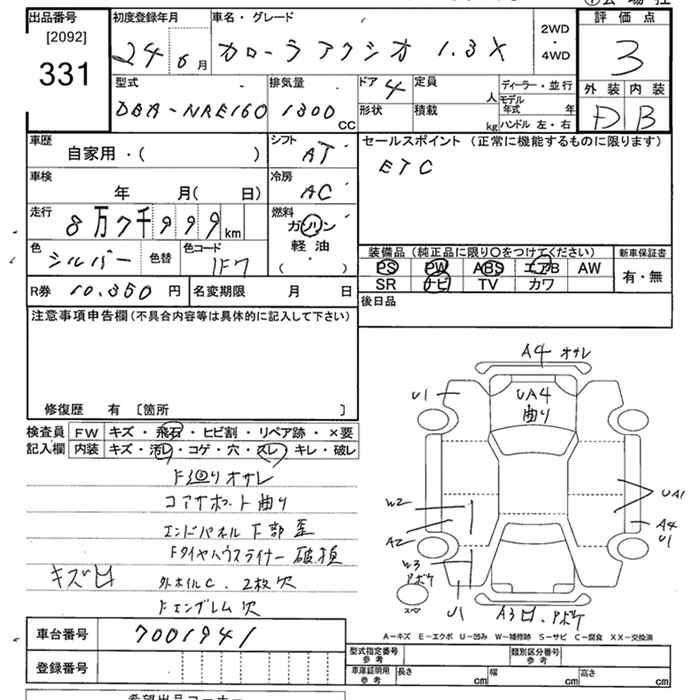 出品番号
[2092]
331
初度登録年月
24 6月
車名・グレード
カローラアクシオ 1.3X
2WD
4WD
評価点
3
型式
DBA-NRE160
排気量
1300 CC
ドア 4
形状
定員 人
積載 kg
ディーラー・並行
モデル年式 年
ハンドル 左・右
外装 内装
D B
車歴
自家用・( )
シフト
AT
セールスポイント (正常に機能するものに限ります)
ETC
車検
年 月( 日)
冷房
AC
走行
8万7千999km
燃料
ガソリン
軽油
( ・ )
色
シルバー
色替
色コード
1F7
装備品 (純正品に限り○をつけてください)
PS PW ABS エアB AW
SR ナビ TV カワ
新車保証書
有・無
R券 10.350円
名変期限 月 日
後日品
注意事項申告欄 (不具合内容等は具体的に記入して下さい)
修復歴 有 〔箇所 〕
検査員記入欄
FW キズ・飛石・ヒビ割・リペア跡・×要
内装 キズ・汚レ・コゲ・穴・スレ・キレ・破レ
F廻りオサレ
コアサポート曲り
エンドパネル下部歪
Fタイヤハウスライナー破損
キズ凹
外ホイルC.2枚穴
Fエンブレム穴
A4 オサレ
U1
UA4
曲り
W2
A2
UA1
A4
U1
W3
アボケ
スペ
U1
A3凹.アボケ
A－キズ E－エクボ U－凹み W－補修跡 S－サビ C－腐食 XX－交換済
車台番号 7001941
登録番号
型式指定番号
参考
類別区分番号
参考
車庫証明用
参考
長さ cm
幅 cm
高さ cm